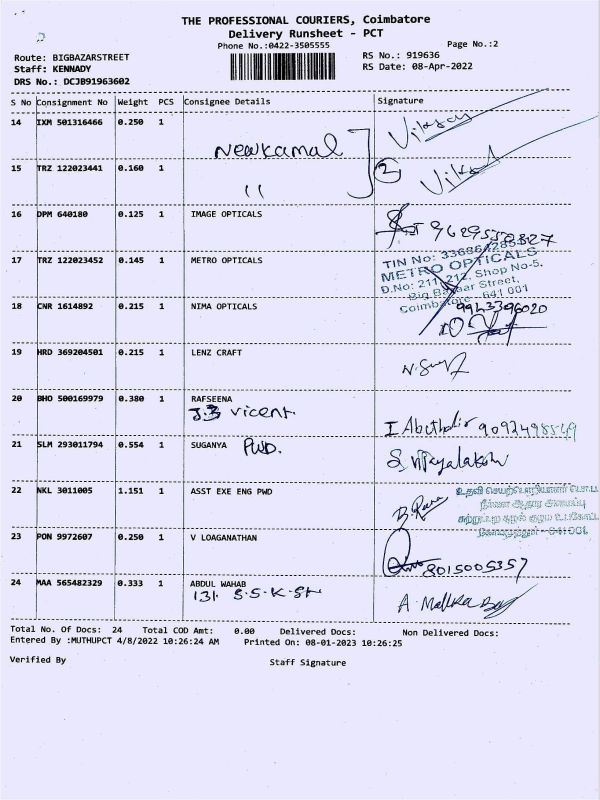 THE PROFESSIONAL COURIERS, Coimbatore
Delivery Runsheet - PCT
Phone No.:0422-3505555
Page No.:2
Route: BIGBAZARSTREET
RS No.: 919636
Staff: KENNADY
RS Date: 08-Apr-2022
DRS No.: DCJB91963602
S No Consignment No Weight PCS Consignee Details Signature
14 IXM 501316466 0.250 1
Newkamal
15 TRZ 122023441 0.160 1
11 2
16 DPM 640180 0.125 1 IMAGE OPTICALS
17 TRZ 122023452 0.145 1 METRO OPTICALS
METRO OPTICALS
D.No: 211, 212, Shop No-5,
Big Bazaar Street,
Coimbatore - 641 001
18 CNR 1614892 0.215 1 NIMA OPTICALS
19 HRD 369204501 0.215 1 LENZ CRAFT
20 BHO 500169979 0.380 1 RAFSEENA
J.B vicent.
21 SLM 293011794 0.554 1 SUGANYA PWD.
22 NKL 3011005 1.151 1 ASST EXE ENG PWD
23 PON 9972607 0.250 1 V LOAGANATHAN
8015005357
24 MAA 565482329 0.333 1 ABDUL WAHAB
131. S.S.K.St
Total No. Of Docs: 24 Total COD Amt: 0.00 Delivered Docs: Non Delivered Docs:
Entered By :MUTHUPCT 4/8/2022 10:26:24 AM Printed On: 08-01-2023 10:26:25
Verified By Staff Signature